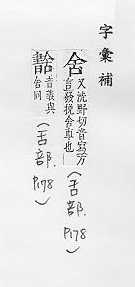 字彙補
舍
又洗野切音寫方
言發稅舍車也
(舌部. P178)
音義與
同
(舌部. P178)